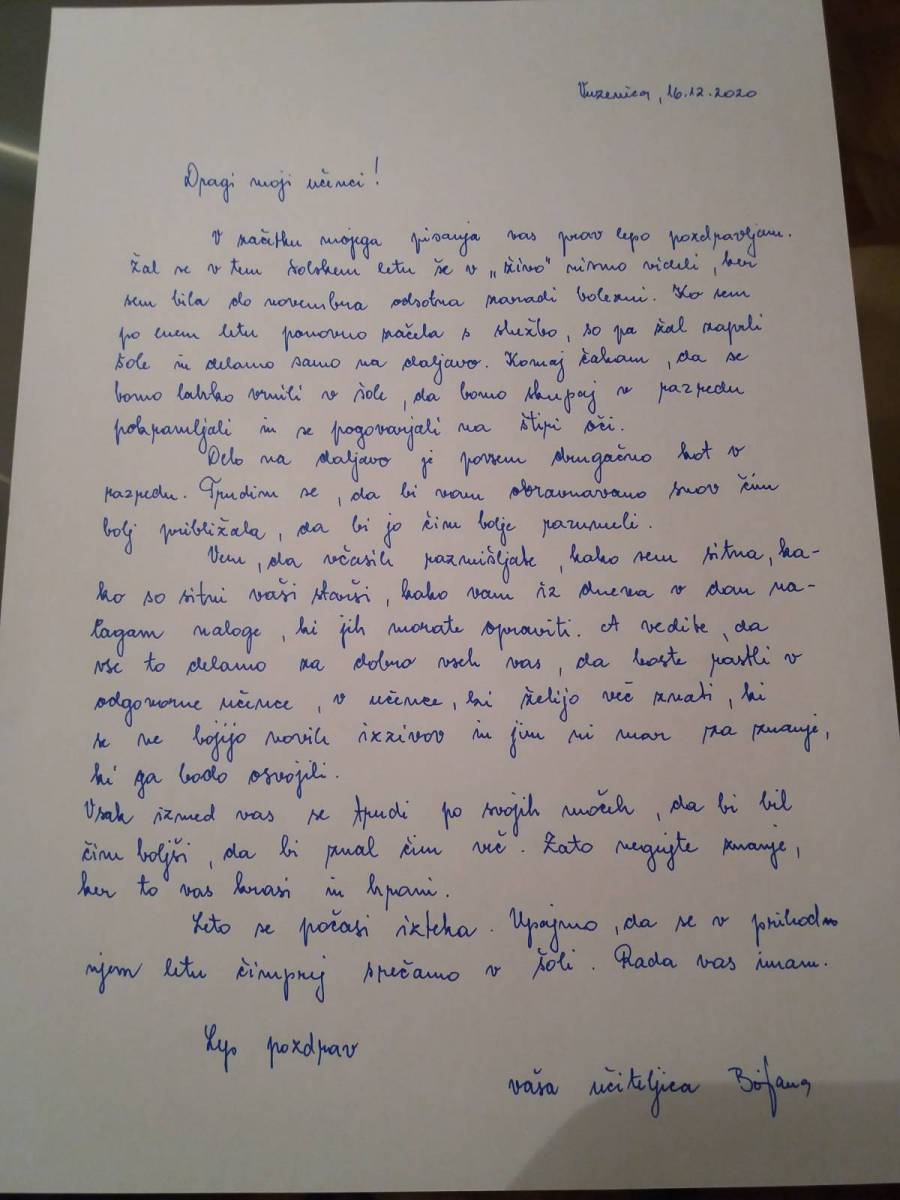 Vuzenica, 16.12.2020
Dragi moji učenci!
V začetku mojega pisanja vas prav lepo pozdravljam.
Žal se v tem šolskem letu še v „živo" nismo videli, ker
sem bila do novembra odsotna zaradi bolezni. Ko sem
po enem letu ponovno začela s službo, so pa žal zaprli
šole in delamo samo na daljavo. Komaj čakam, da se
bomo lahko vrnili v šole, da bomo skupaj v razredu
pokramljali in se pogovarjali na štiri oči.
Delo na daljavo je povsem drugačno kot v
razredu. Trudim se, da bi vam obravnavano snov čim
bolj približala, da bi jo čim bolje razumeli.
Vem, da včasih razmišljate, kako sem sitna, ka-
ko so sitni vaši starši, kako vam iz dneva v dan na-
lagam naloge, ki jih morate opraviti. A vedite, da
vse to delamo za dobro vseh vas, da boste rastli v
odgovorne učence, v učence, ki želijo več znati, ki
se ne bojijo novih izzivov in jim ni mar za znanje,
ki ga bodo osvojili.
Vsak izmed vas se trudi po svojih močeh, da bi bil
čim boljši, da bi znal čim več. Zato negujte znanje,
ker to vas krasi in hrani.
Leto se počasi izteka. Upajmo, da se v prihod
njem letu čimprej srečamo v šoli. Rada vas imam.
Lep pozdrav
vaša učiteljica